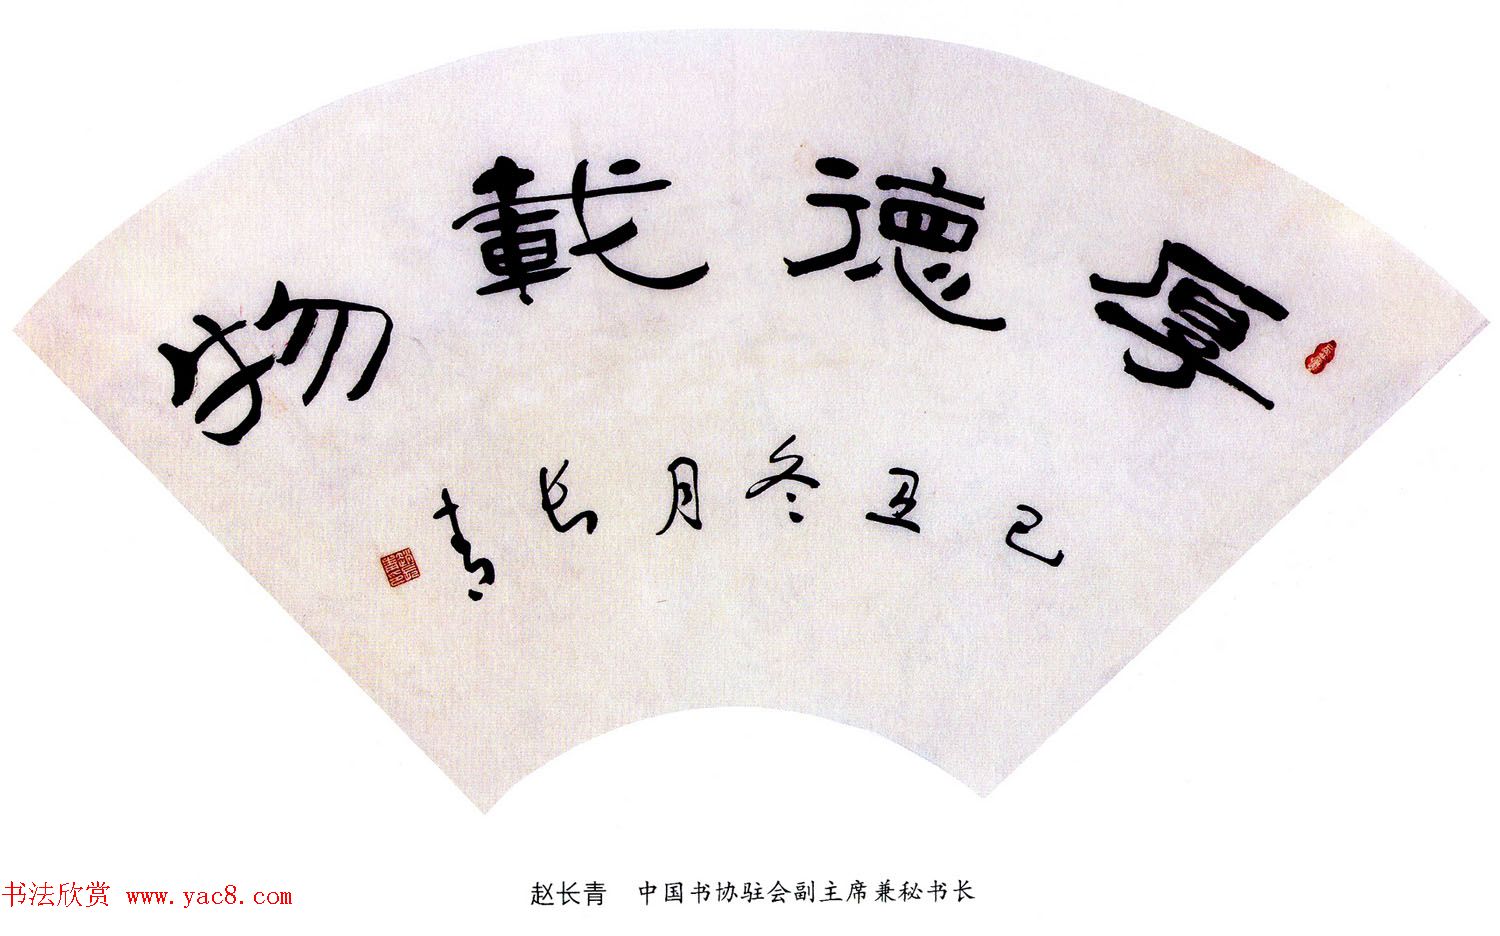 厚德載物
己丑冬月長青
赵长青 中国书协驻会副主席兼秘书长
书法欣赏 www.yac8.com